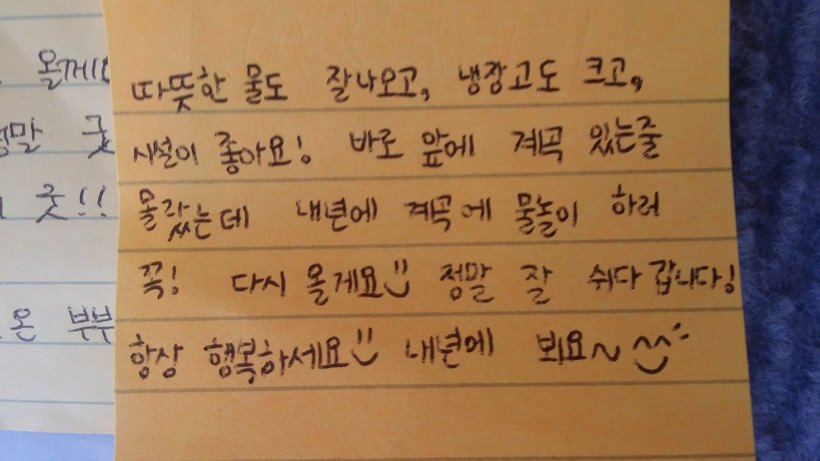 올게
따뜻한 물도 잘나오고, 냉장고도 크고,
말 굿
시설이 좋아요! 바로 앞에 계곡 있는줄
굿!!
몰랐는데 내년에 계곡에 물놀이 하러
꼭! 다시 올게요 정말 잘 쉬다 갑니다!
온 부부
항상 행복하세요 내년에 봬요~ ^^